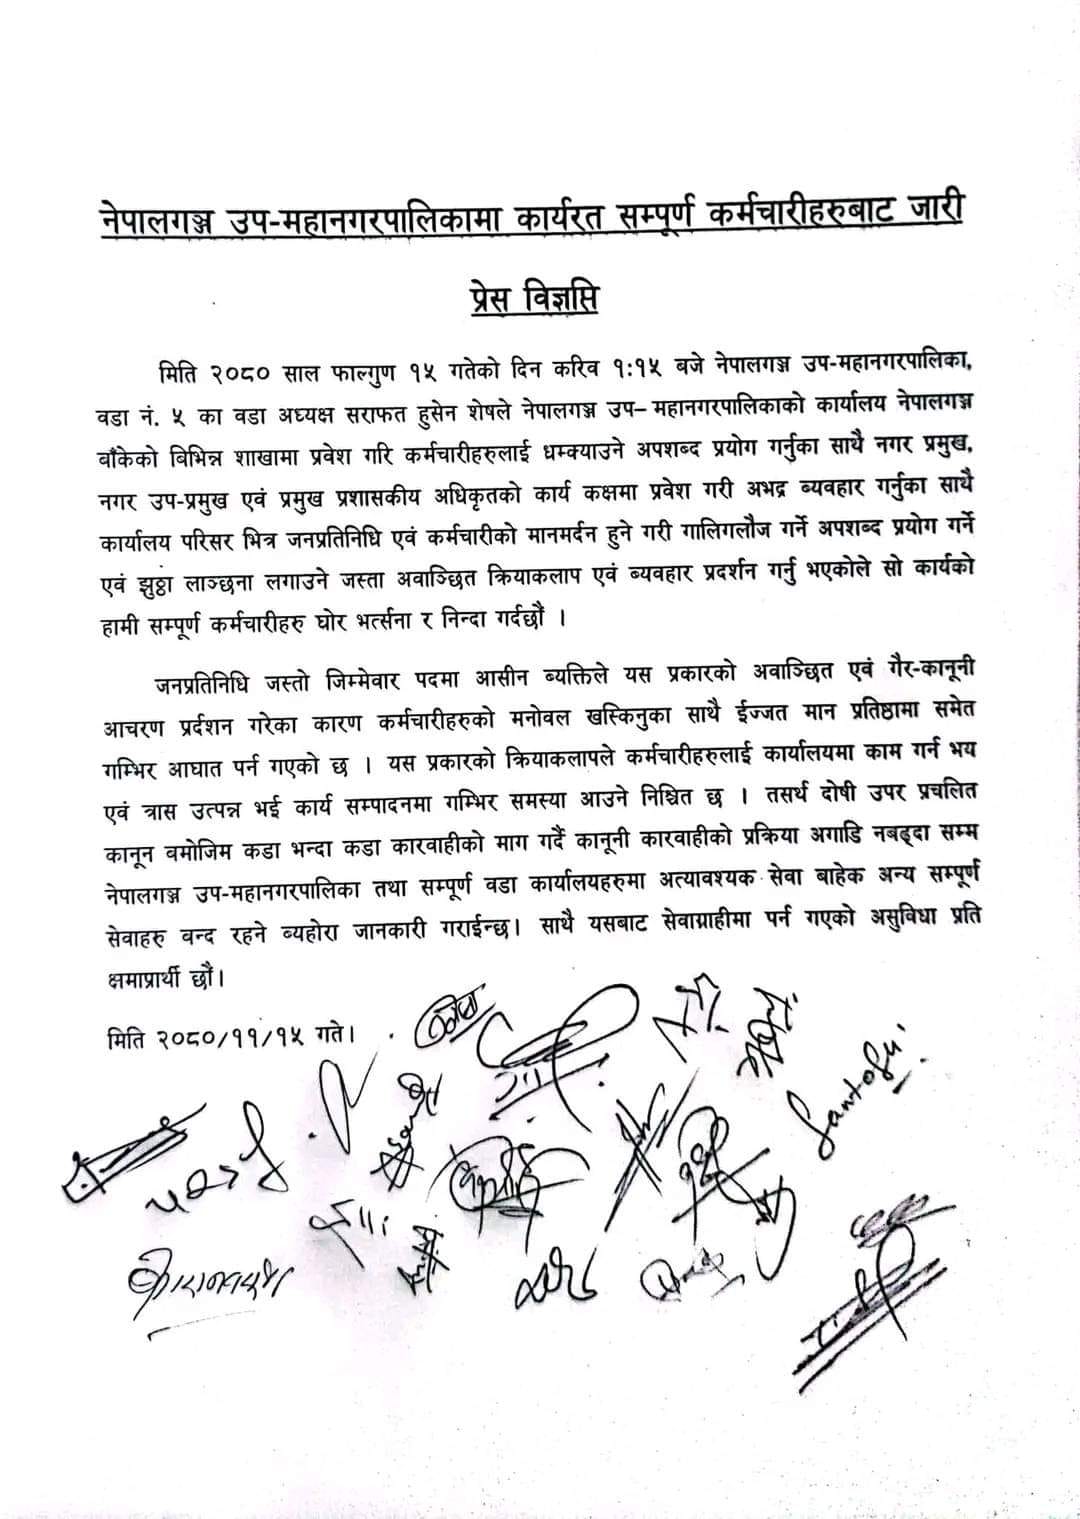 नेपालगञ्ज उप-महानगरपालिकामा कार्यरत सम्पूर्ण कर्मचारीहरुबाट जारी
प्रेस विज्ञप्ति
मिति २०८० साल फाल्गुण १५ गतेको दिन करिव १:१५ बजे नेपालगञ्ज उप-महानगरपालिका,
वडा नं. ५ का वडा अध्यक्ष सराफत हुसेन शेषले नेपालगञ्ज उप– महानगरपालिकाको कार्यालय नेपालगञ्ज
बाँकेको विभिन्न शाखामा प्रवेश गरि कर्मचारीहरुलाई धम्क्याउने अपशब्द प्रयोग गर्नुका साथै नगर प्रमुख,
नगर उप-प्रमुख एवं प्रमुख प्रशासकीय अधिकृतको कार्य कक्षमा प्रवेश गरी अभद्र ब्यवहार गर्नुका साथै
कार्यालय परिसर भित्र जनप्रतिनिधि एवं कर्मचारीको मानमर्दन हुने गरी गालिगलौज गर्ने अपशब्द प्रयोग गर्ने
एवं झुठ्ठा लाञ्छना लगाउने जस्ता अवाञ्छित क्रियाकलाप एवं ब्यवहार प्रदर्शन गर्नु भएकोले सो कार्यको
हामी सम्पूर्ण कर्मचारीहरु घोर भर्त्सना र निन्दा गर्दछौं ।
जनप्रतिनिधि जस्तो जिम्मेवार पदमा आसीन ब्यक्तिले यस प्रकारको अवाञ्छित एवं गैर-कानूनी
आचरण प्रर्दशन गरेका कारण कर्मचारीहरुको मनोवल खस्किनुका साथै ईज्जत मान प्रतिष्ठामा समेत
गम्भिर आघात पर्न गएको छ । यस प्रकारको क्रियाकलापले कर्मचारीहरुलाई कार्यालयमा काम गर्न भय
एवं त्रास उत्पन्न भई कार्य सम्पादनमा गम्भिर समस्या आउने निश्चित छ । तसर्थ दोषी उपर प्रचलित
कानून वमोजिम कडा भन्दा कडा कारवाहीको माग गर्दै कानूनी कारवाहीको प्रक्रिया अगाडि नबढ्दा सम्म
नेपालगञ्ज उप-महानगरपालिका तथा सम्पूर्ण वडा कार्यालयहरुमा अत्यावश्यक सेवा बाहेक अन्य सम्पूर्ण
सेवाहरु वन्द रहने ब्यहोरा जानकारी गराईन्छ। साथै यसबाट सेवाग्राहीमा पर्न गएको असुविधा प्रति
क्षमाप्रार्थी छौं।
मिति २०८०/११/१५ गते।
Santosh